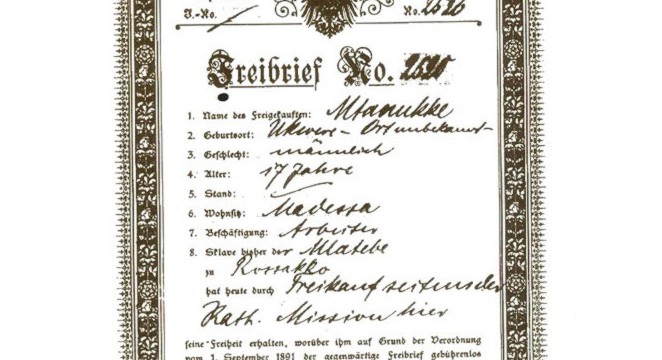 J.-No. No. 2520
Freibrief No. 2520
1. Name des Freigekauften: Mtanukke
2. Geburtsort: Ukwere - Ort unbekannt
3. Geschlecht: männlich
4. Alter: 17 Jahre
5. Stand:
6. Wohnsitz: Madessa
7. Beschäftigung: Arbeiter
8. Sklave bisher der Matebe
zu Kossakko
hat heute durch Freikauf seitens der
Kath. Mission hier
seine Freiheit erhalten, worüber ihm auf Grund der Verordnung
vom 1. September 1891 der gegenwärtige Freibrief gebührenlos